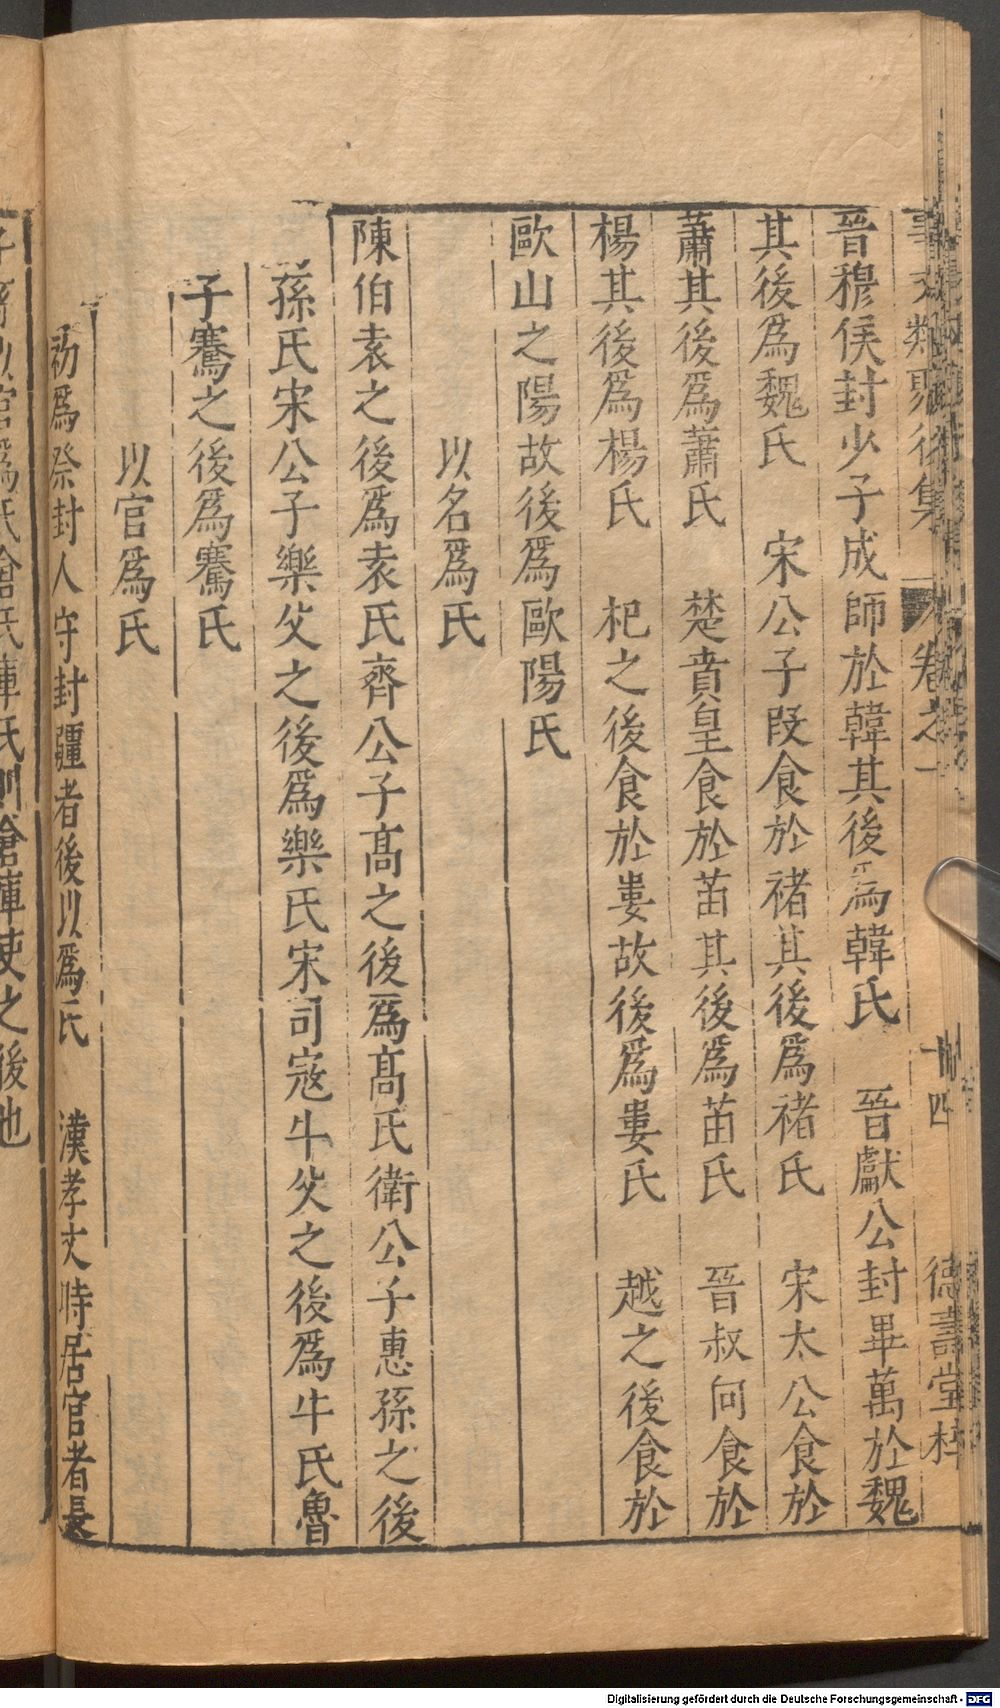 事文類聚後集 卷之一 十四 德壽堂梓
晉穆侯封少子成師於韓其後爲韓氏 晉獻公封畢萬於魏
其後爲魏氏 宋公子段食於褚其後爲褚氏 宋太公食於
蕭其後爲蕭氏 楚賁皇食於苗其後爲苗氏 晉叔向食於
楊其後爲楊氏 杞之後食於婁故後爲婁氏 越之後食於
歐山之陽故後爲歐陽氏
以名爲氏
陳伯袁之後爲袁氏齊公子高之後爲高氏衛公子惠孫之後
孫氏宋公子樂父之後爲樂氏宋司寇牛父之後爲牛氏魯
子騫之後爲騫氏
以官爲氏
初爲祭封人守封疆者後以爲氏 漢孝文時居官者長
子孫以官爲氏倉氏庫氏則倉庫吏之後也
Digitalisierung gefördert durch die Deutsche Forschungsgemeinschaft - DFG